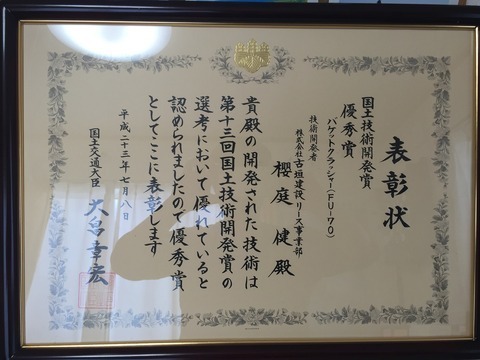 表彰状
国土技術開発賞
優秀賞
バケットクラッシャー(FU-70)
技術開発者
株式会社古垣建設リース事業部
櫻庭 健 殿
貴殿の開発された技術は
第十三回国土技術開発賞の
選考において優れていると
認められましたので優秀賞
としてここに表彰します
平成二十三年七月八日
国土交通大臣 大畠章宏